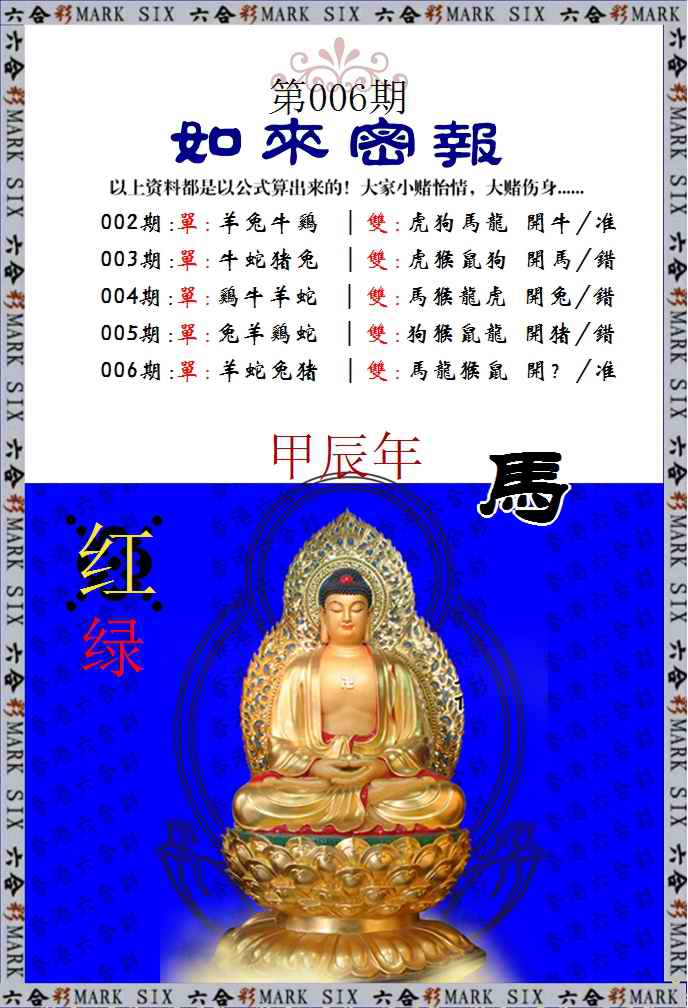 六合彩MARK SIX 六合彩MARK SIX 六合彩MARK SIX 六合彩MARK SIX
第006期
如來密報
以上资料都是以公式算出来的！大家小赌怡情，大赌伤身......
002期:單:羊兔牛鷄 | 雙:虎狗馬龍 開牛/准
003期:單:牛蛇猪兔 | 雙:虎猴鼠狗 開馬/錯
004期:單:鷄牛羊蛇 | 雙:馬猴龍虎 開兔/錯
005期:單:兔羊鷄蛇 | 雙:狗猴鼠龍 開猪/錯
006期:單:羊蛇兔猪 | 雙:馬龍猴鼠 開?/准
甲辰年
馬
红
绿
六合彩MARK SIX 六合彩MARK SIX 六合彩MARK SIX 六合彩MARK SIX